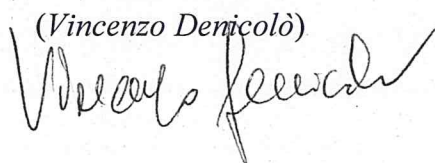 (Vincenzo Denicolò)
Vincenzo Denicolò